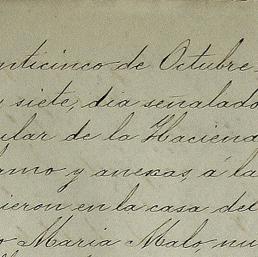 nticinco de Octubre
y siete, dia señalado
ular de la Hacienda
lamo y anexas, á la
ieron en la casa del
o Maria Malo, nu